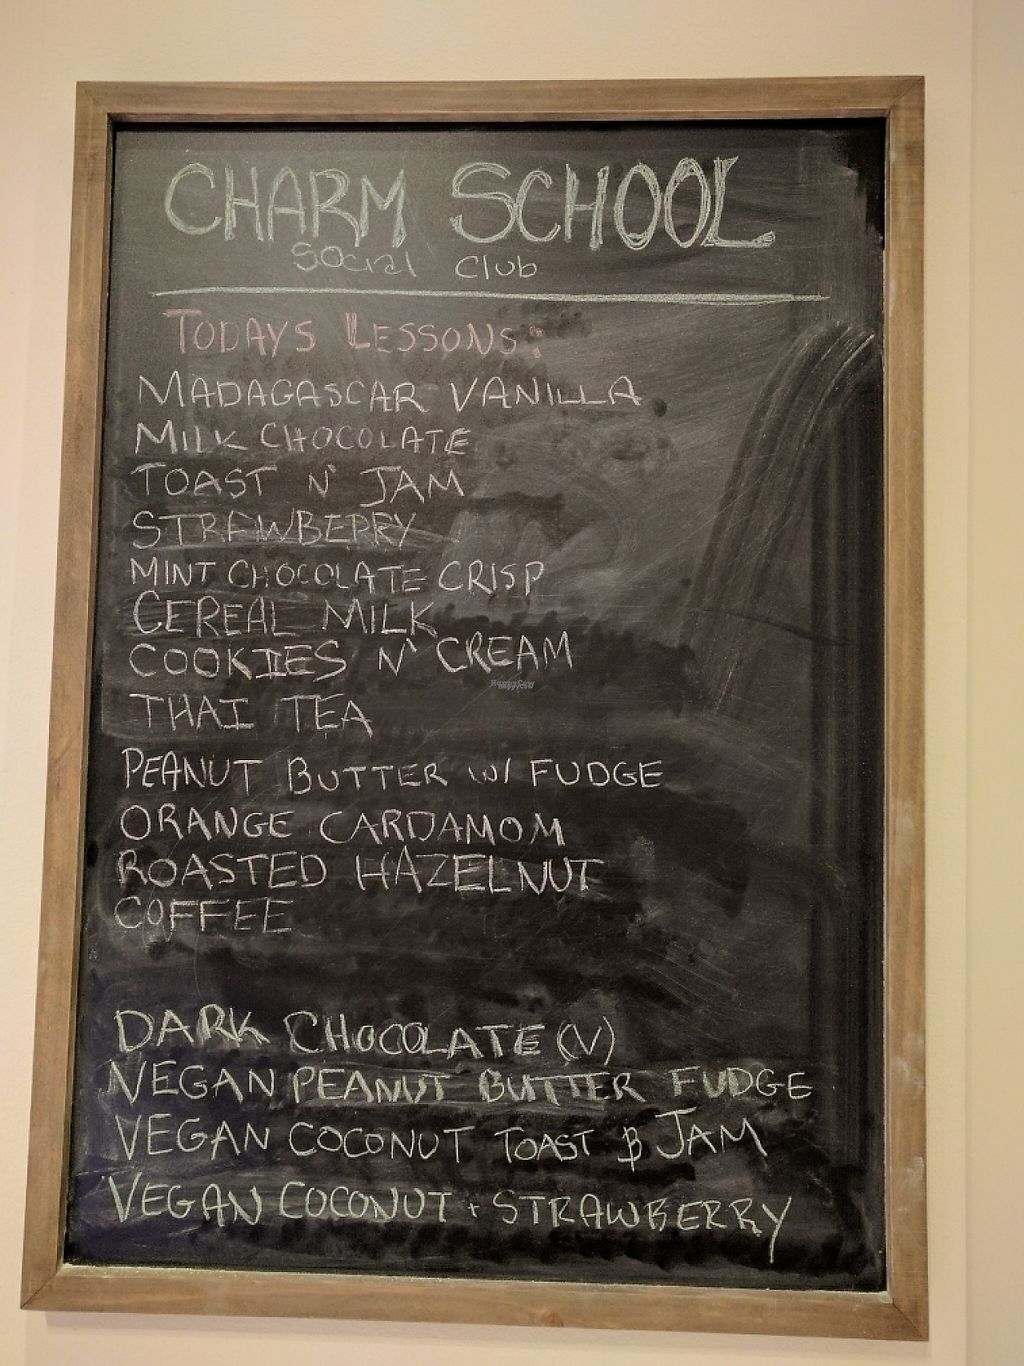 CHARM SCHOOL
Social Club
TODAYS LESSONS:
MADAGASCAR VANILLA
MILK CHOCOLATE
TOAST N' JAM
STRAWBERRY
MINT CHOCOLATE CRISP
CEREAL MILK
COOKIES N' CREAM
HappyCow
THAI TEA
PEANUT BUTTER W/ FUDGE
ORANGE CARDAMOM
ROASTED HAZELNUT
COFFEE
DARK CHOCOLATE (V)
VEGAN PEANUT BUTTER FUDGE
VEGAN COCONUT TOAST & JAM
VEGAN COCONUT + STRAWBERRY